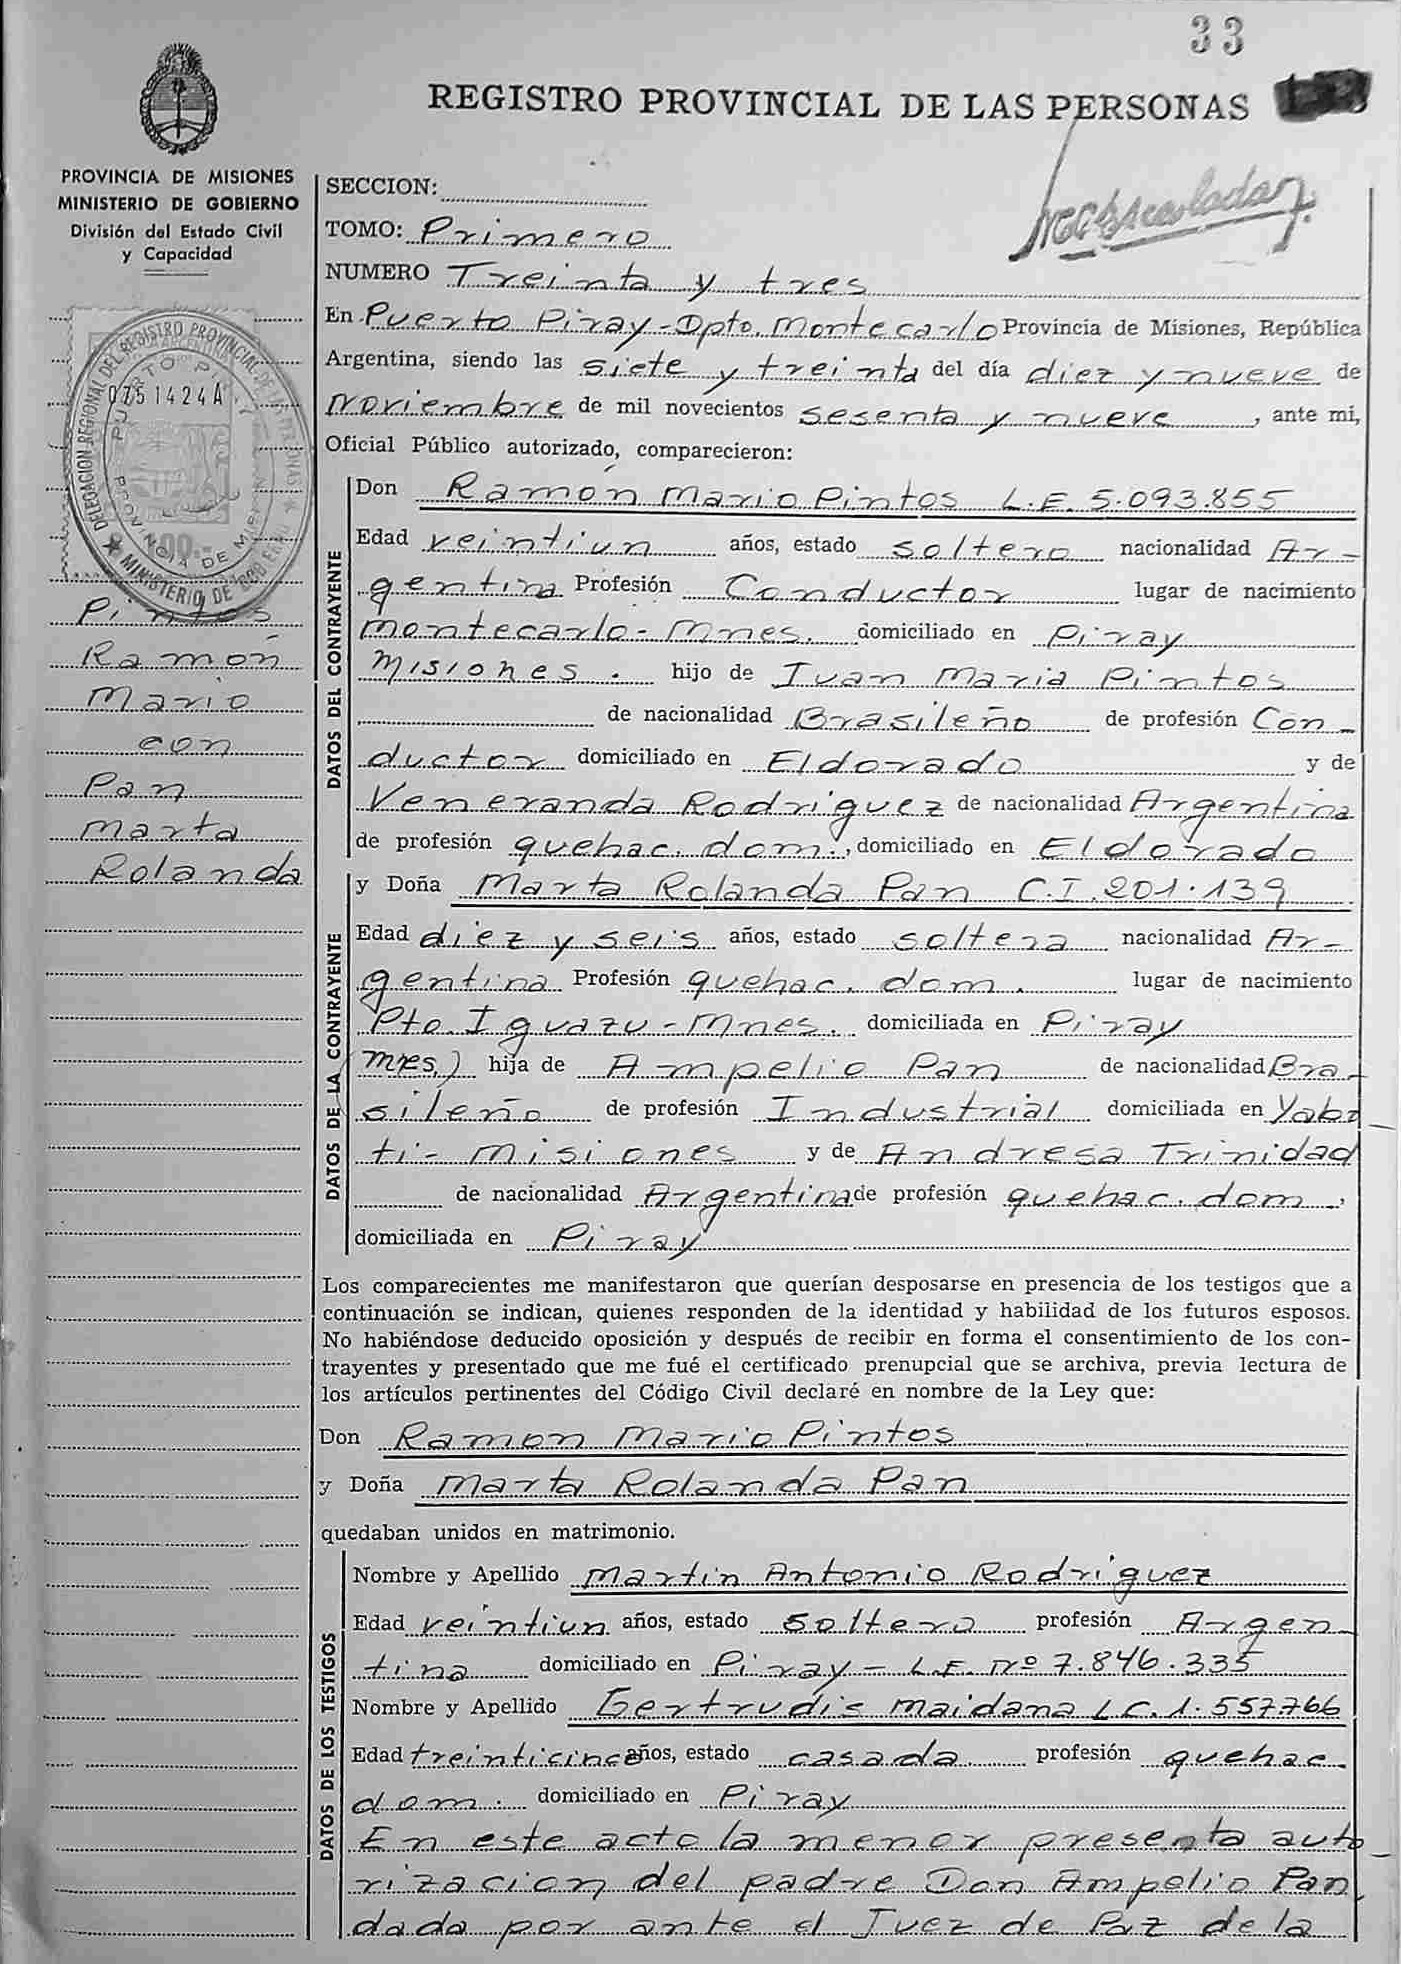 33
REGISTRO PROVINCIAL DE LAS PERSONAS
PROVINCIA DE MISIONES
MINISTERIO DE GOBIERNO
División del Estado Civil
y Capacidad
DELEGACION REGIONAL DEL REGISTRO PROVINCIAL DE LAS PERSONAS
PUERTO PIRAY
0751424A
PROVINCIA DE MISIONES
MINISTERIO DE GOBIERNO
Pintos
Ramón
Mario
con
Pan
Marta
Rolanda
SECCION:
TOMO: Primero
NUMERO Treinta y tres
En Puerto Piray - Dpto. Montecarlo Provincia de Misiones, República
Argentina, siendo las siete y treinta del día diez y nueve de
Noviembre de mil novecientos sesenta y nueve, ante mi,
Oficial Público autorizado, comparecieron:
DATOS DEL CONTRAYENTE
Don Ramón Mario Pintos L.E. 5.093.855
Edad veintiun años, estado soltero nacionalidad Ar-
gentina Profesión Conductor lugar de nacimiento
Montecarlo - Mnes. domiciliado en Piray
Misiones. hijo de Ivan Maria Pintos
de nacionalidad Brasileño de profesión Con-
ductor domiciliado en Eldorado y de
Veneranda Rodriguez de nacionalidad Argentina
de profesión quehac. dom., domiciliado en Eldorado
DATOS DE LA CONTRAYENTE
y Doña Marta Rolanda Pan C.I. 201.139
Edad diez y seis años, estado soltera nacionalidad Ar-
gentina Profesión quehac. dom. lugar de nacimiento
Pto. Iguazu - Mnes. domiciliada en Piray
Mnes) hija de Ampelio Pan de nacionalidad Bra-
sileño de profesión Industrial domiciliada en Yabo
ti - Misiones y de Andresa Trinidad
de nacionalidad Argentina de profesión quehac. dom.,
domiciliada en Piray
Los comparecientes me manifestaron que querían desposarse en presencia de los testigos que a
continuación se indican, quienes responden de la identidad y habilidad de los futuros esposos.
No habiéndose deducido oposición y después de recibir en forma el consentimiento de los con-
trayentes y presentado que me fué el certificado prenupcial que se archiva, previa lectura de
los artículos pertinentes del Código Civil declaré en nombre de la Ley que:
Don Ramon Mario Pintos
y Doña Marta Rolanda Pan
quedaban unidos en matrimonio.
DATOS DE LOS TESTIGOS
Nombre y Apellido Martin Antonio Rodriguez
Edad veintiun años, estado soltero profesión Argen
tina domiciliado en Piray - L.E. Nº 7.846.335
Nombre y Apellido Gertrudis Maidana L.C. 1.557.766
Edad treinticinco años, estado casada profesión quehac
dom. domiciliado en Piray
En este acto la menor presenta auto
rizacion del padre Don Ampelio Pan
dada por ante el Juez de Paz de la